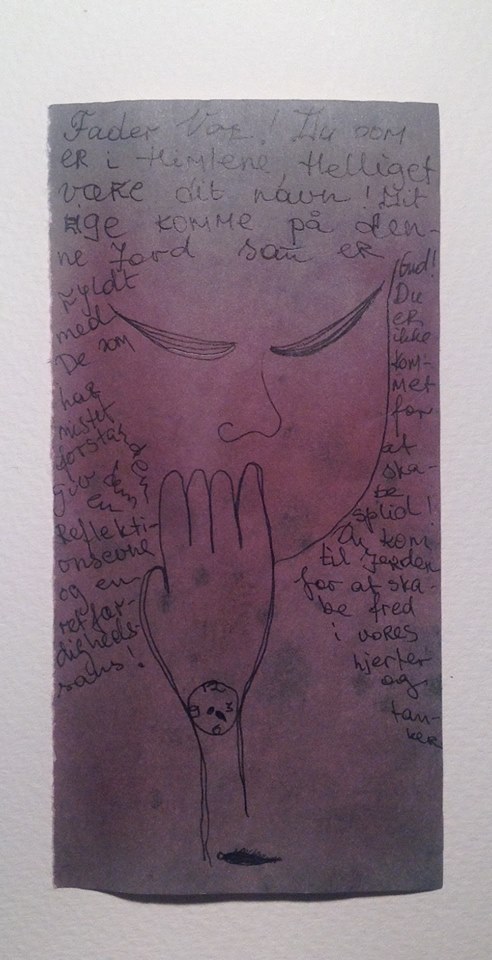 Fader Vor! Du som
er i Himlene, Helliget
være dit navn! Dit
rige komme på den-
ne Jord som er
fyldt
med
De som
har
mistet
forstanden
giv dem
en
Reflekti-
onsevne
og en
retfær-
digheds-
sans!
Gud!
Du
er
ikke
kom-
met
for
at
ska-
be
splid!
Du kom
til Jorden
for at ska-
be fred
i vores
hjerter
og
tan-
ker